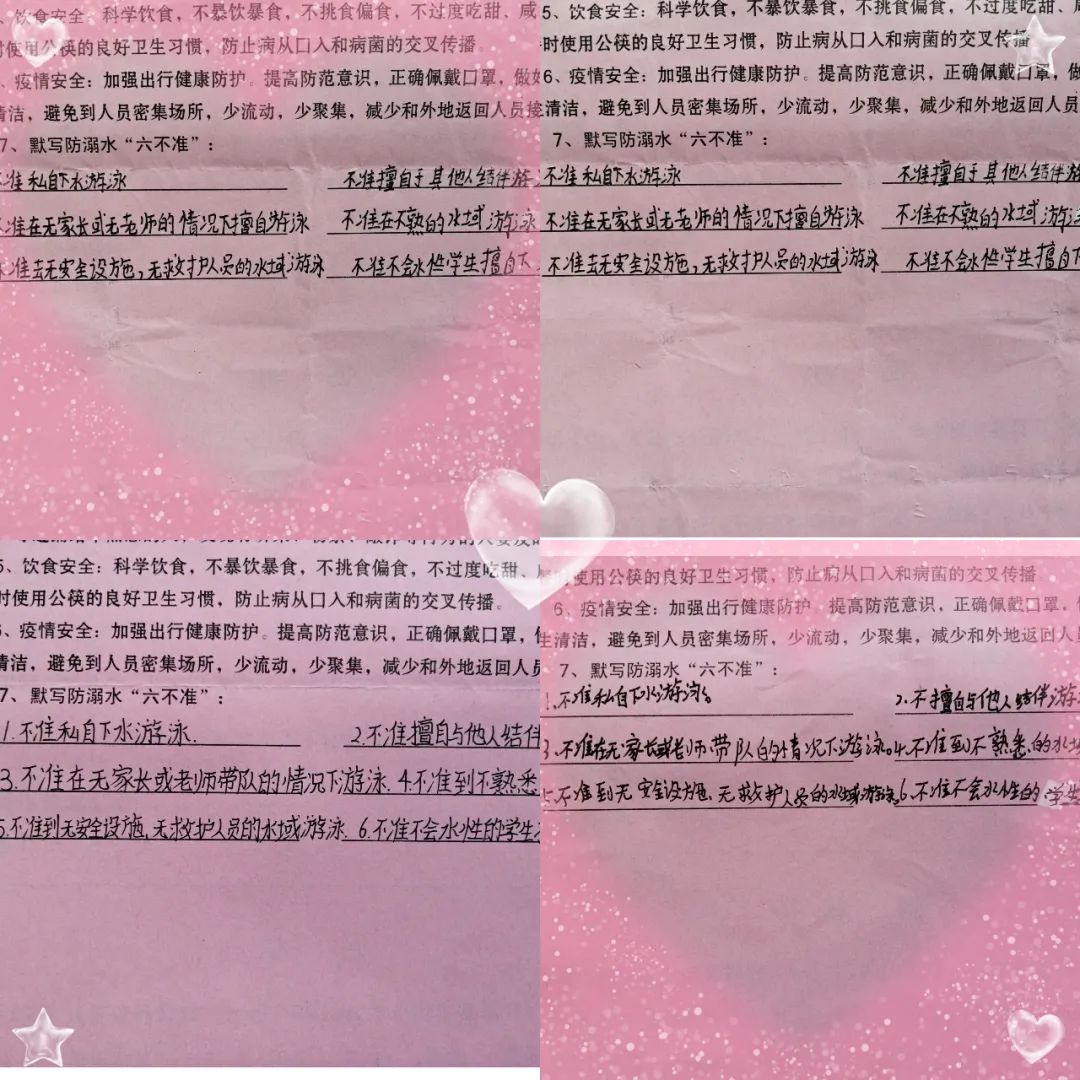 、饮食安全：科学饮食，不暴饮暴食，不挑食偏食，不过度吃甜、咸
时使用公筷的良好卫生习惯，防止病从口入和病菌的交叉传播。
、疫情安全：加强出行健康防护。提高防范意识，正确佩戴口罩，做好
清洁，避免到人员密集场所，少流动，少聚集，减少和外地返回人员接
7、默写防溺水“六不准”：
不准私自下水游泳 不准擅自于其他人结伴游
不准在无家长或无老师的情况下擅自游泳 不准在不熟的水域游泳
不准去无安全设施，无救护人员的水域游泳 不准不会水性学生擅自下
5、饮食安全：科学饮食，不暴饮暴食，不挑食偏食，不过度吃甜、咸
时使用公筷的良好卫生习惯，防止病从口入和病菌的交叉传播
6、疫情安全：加强出行健康防护。提高防范意识，正确佩戴口罩，做
清洁，避免到人员密集场所，少流动，少聚集，减少和外地返回人员
7、默写防溺水“六不准”：
不准私自下水游泳 不准擅自于其他人结伴游
不准在无家长或无老师的情况下擅自游泳 不准在不熟的水域游泳
不准去无安全设施，无救护人员的水域游泳 不准不会水性学生擅自下
5、饮食安全：科学饮食，不暴饮暴食，不挑食偏食，不过度吃甜、
时使用公筷的良好卫生习惯，防止病从口入和病菌的交叉传播。
、疫情安全：加强出行健康防护。提高防范意识，正确佩戴口罩，
清洁，避免到人员密集场所，少流动，少聚集，减少和外地返回人员
7、默写防溺水“六不准”：
1.不准私自下水游泳. 2.不准擅自与他人结伴
3.不准在无家长或老师带队的情况下游泳. 4.不准到不熟悉
5.不准到无安全设施,无救护人员的水域游泳. 6.不准不会水性的学生
时使用公筷的良好卫生习惯，防止病从口入和病菌的交叉传播
6、疫情安全：加强出行健康防护 提高防范意识，正确佩戴口罩，
生清洁，避免到人员密集场所，少流动，少聚集，减少和外地返回人员
7、默写防溺水“六不准”：
1.不准私自下水游泳。 2.不擅自与他人结伴游
3.不准在无家长或老师带队的情况下游泳。4.不准到不熟悉的水域
5.不准到无安全设施、无救护人员的水域游泳 6.不准不会水性的学生